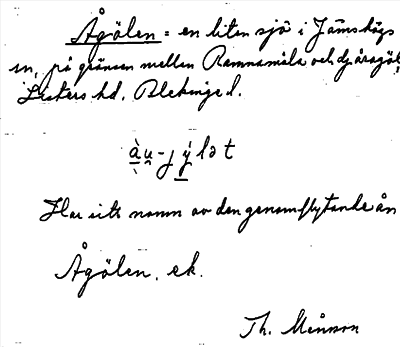 Ågölen = en liten sjö i Jämshögs
sn, på gränsen mellan Ramnamåla och Djäragöl,
Listers hd, Blekinge l.
àu̯-jýlət
Har sitt namn av den genomflytande ån
Ågölen, ek.
Th. Månsson